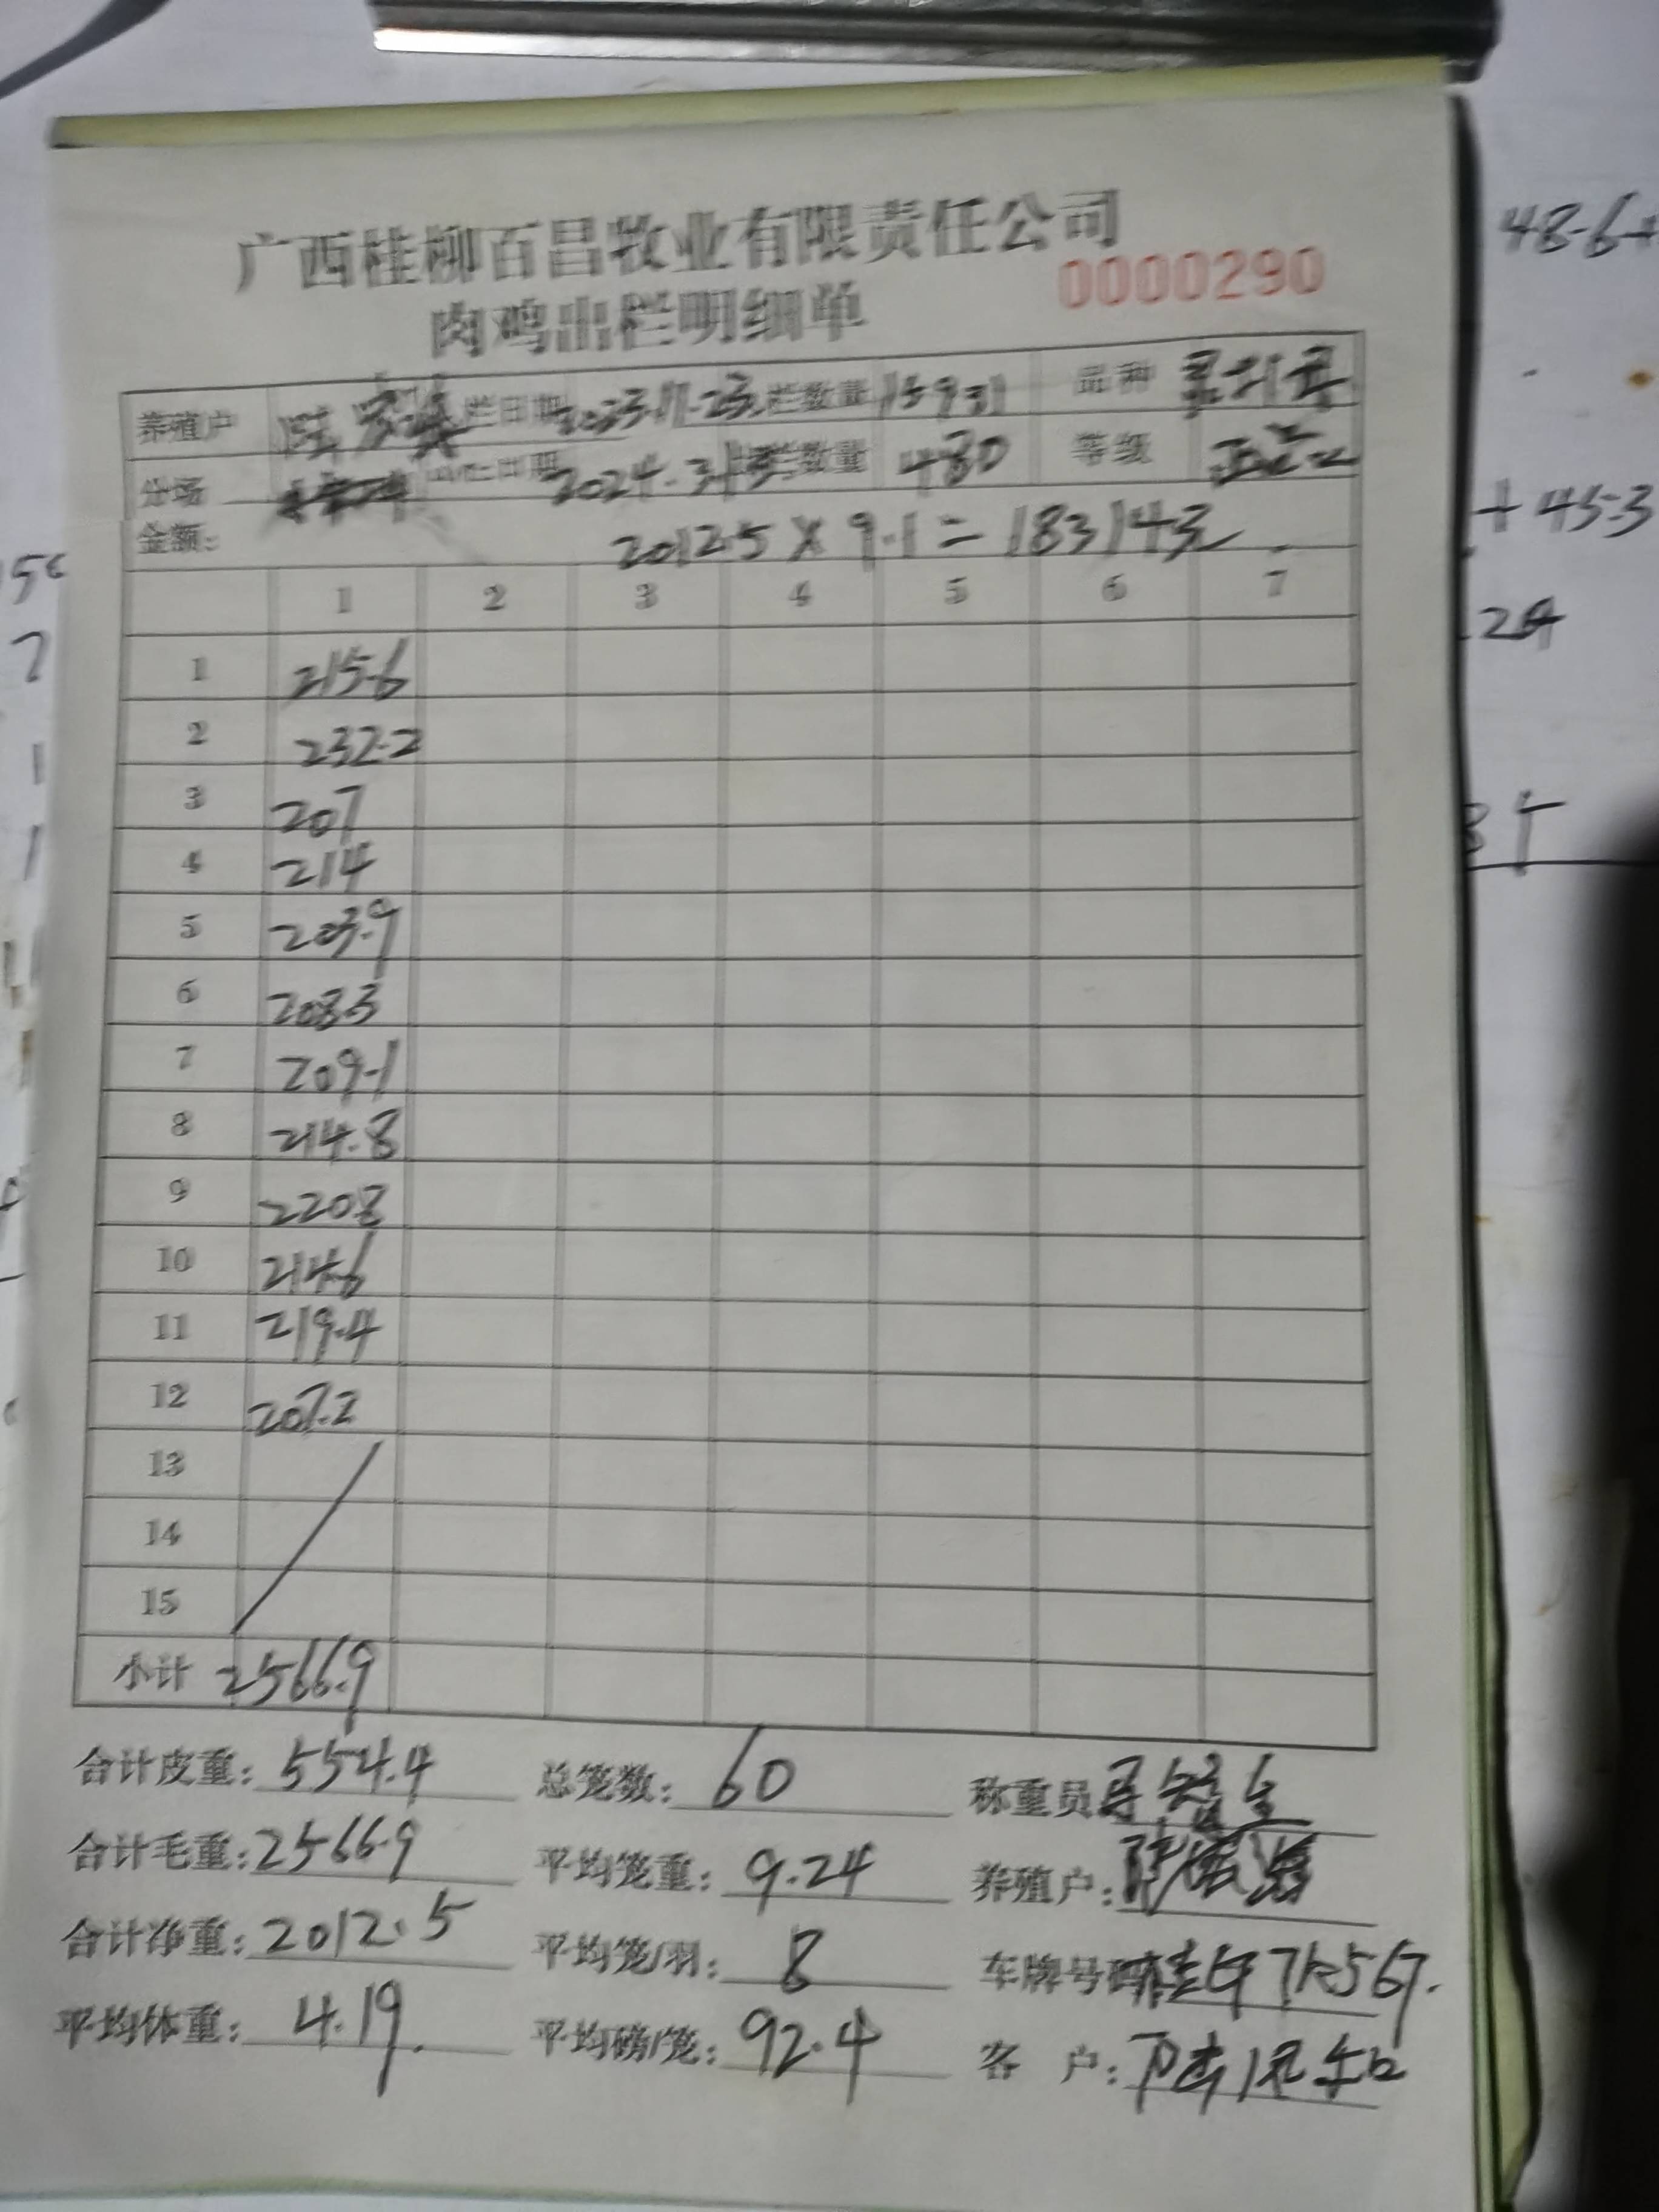 广西桂柳百昌牧业有限责任公司
肉鸡出栏明细单 0000290
养殖户 栏日期 2023.11.23 栏数量 15931 品种
分场 出栏日期 栏数量 480 等级
金额: 2012.5 X 9.1 = 18314元
1 2 3 4 5 6 7
1 215.6
2 232.2
3 207
4 214
5 203.9
6 208.3
7 209.1
8 214.8
9 220.8
10 214.6
11 219.4
12 207.2
13
14
15
小计 2566.9
合计皮重: 554.4 总笼数: 60 称重员
合计毛重: 2566.9 平均笼重: 9.24 养殖户:
合计净重: 2012.5 平均笼/羽: 8 车牌号码
平均体重: 4.19. 平均磅/笼: 92.4 客 户:
48.6+
+45.3